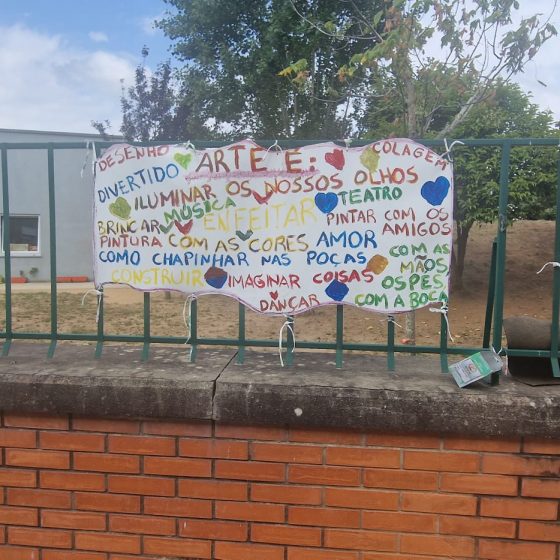 DESENHO ARTE É: COLAGEM
DIVERTIDO ILUMINAR OS NOSSOS OLHOS
BRINCAR MÚSICA ENFEITAR TEATRO
PINTAR COM OS AMIGOS
PINTURA COM AS CORES AMOR
COMO CHAPINHAR NAS POÇAS
COM AS MÃOS,
OS PÉS,
COM A BOCA
CONSTRUIR IMAGINAR COISAS
DANÇAR